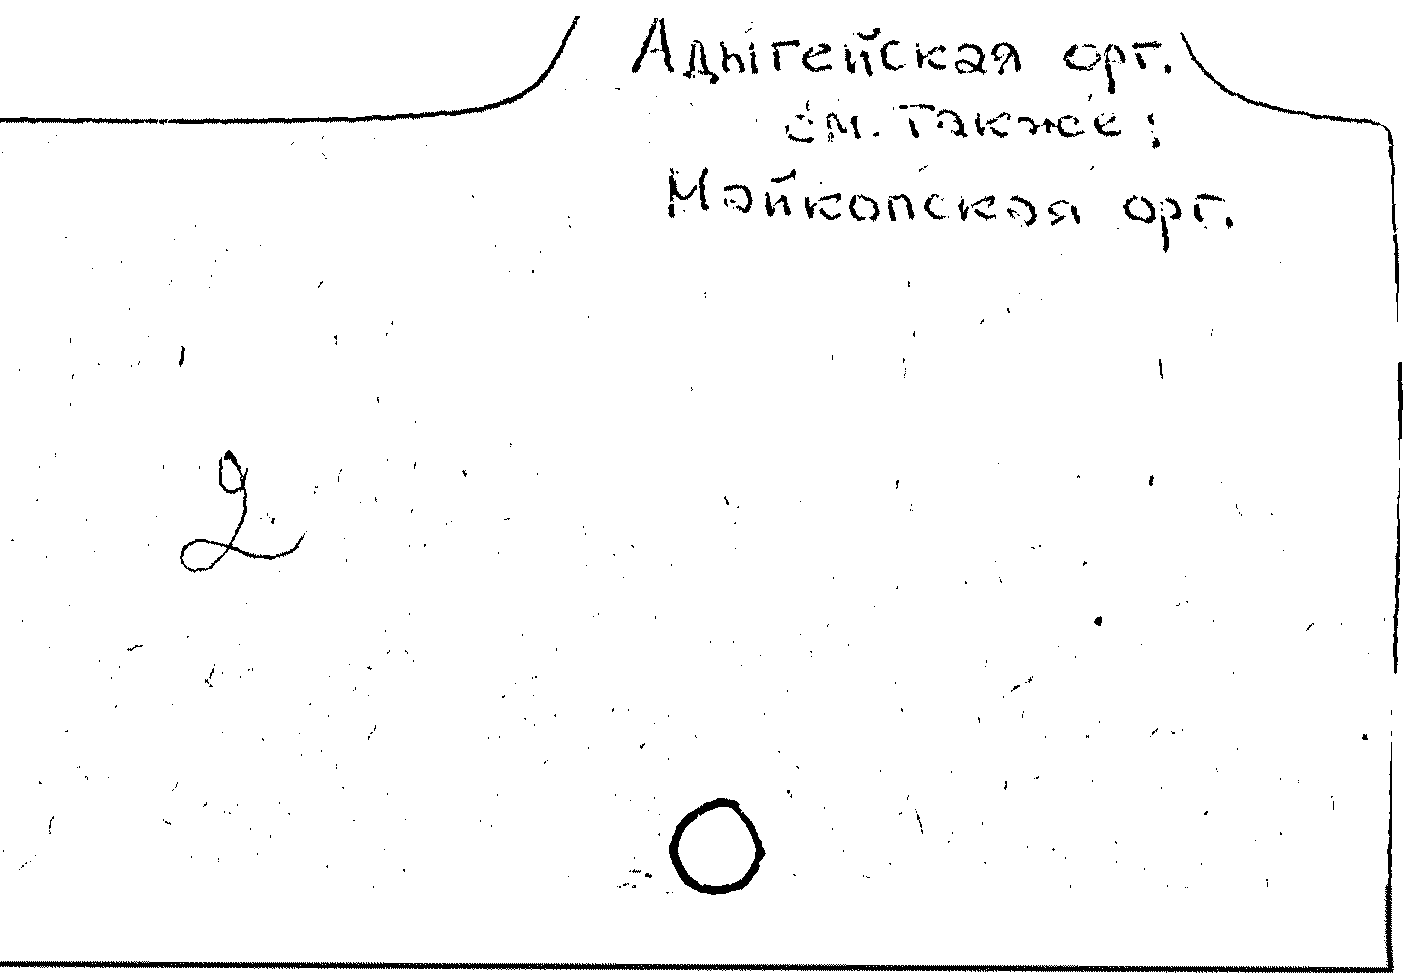 Адыгейская орг.
см. также:
Майкопская орг.
2